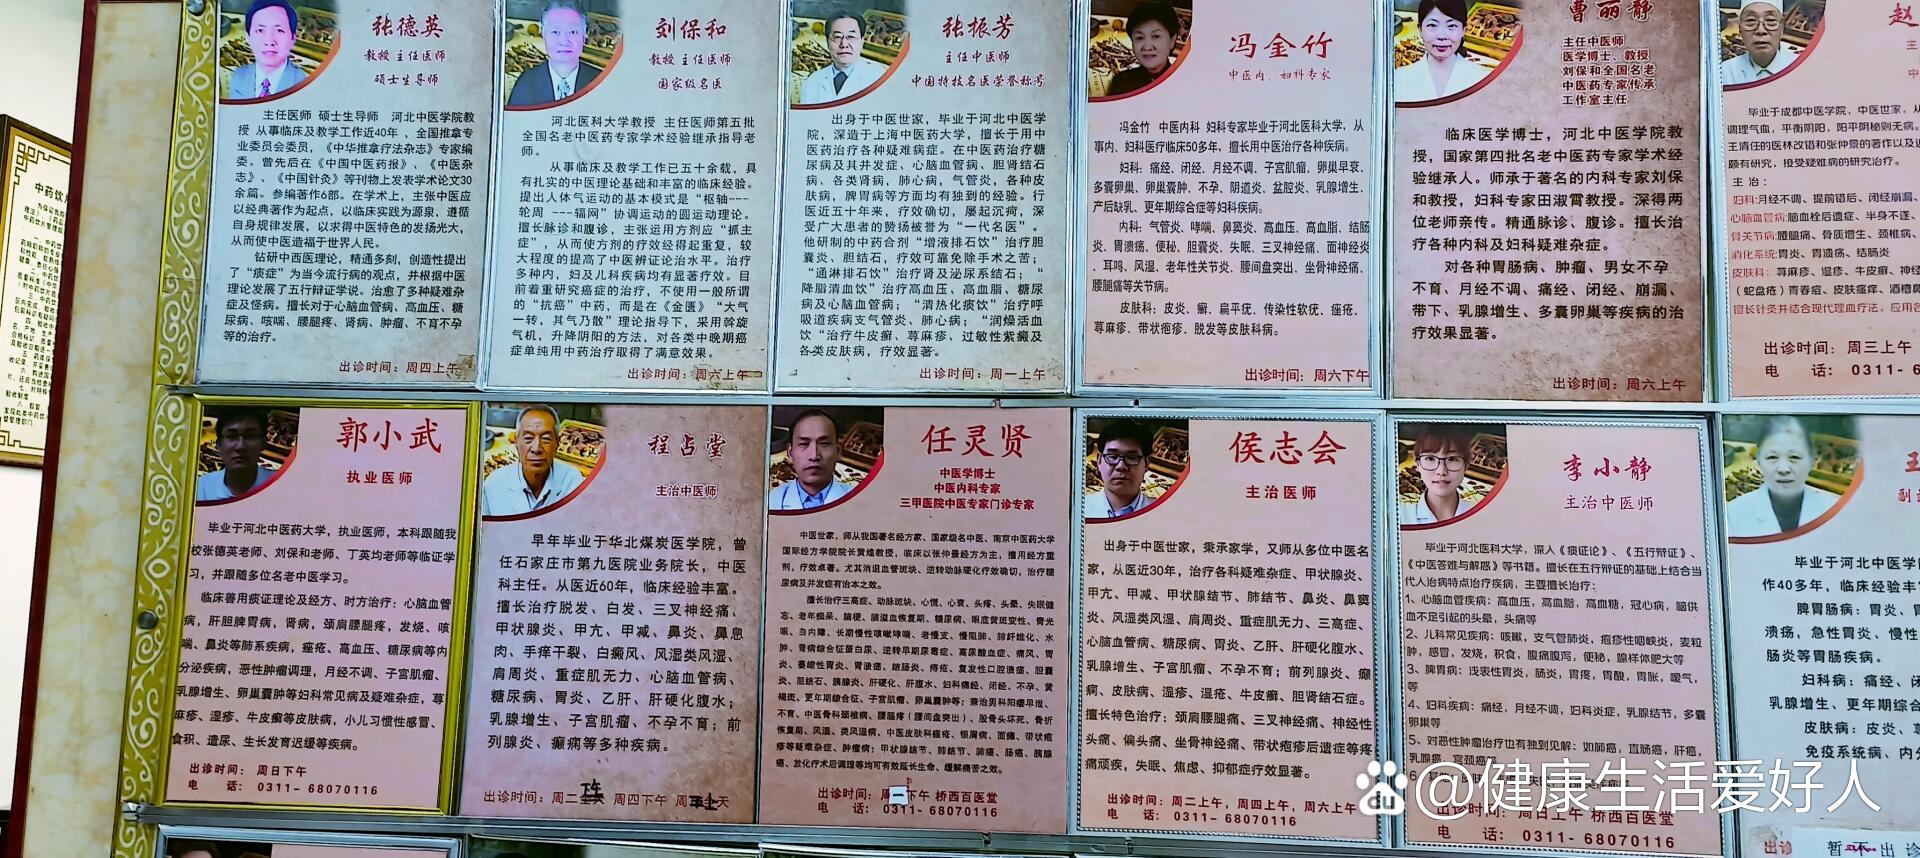 张德英
教授 主任医师、
硕士生导师
主任医师 硕士生导师 河北中医学院教
授 从事临床及教学工作近40年，全国推拿专
业委员会委员，《中华推拿疗法杂志》专家编
委。曾先后在《中国中医药报》、《中医杂
志》、《中国针灸》等刊物上发表学术论文30
余篇。参编著作6部。在学术上，主张中医应
以经典著作为起点，以临床实践为源泉，遵循
自身规律发展，以求得中医特色的发扬光大，
从而使中医造福于世界人民。
钻研中西医理论，精通多刻，创造性提出
了“痰症”为当今流行病的观点，并根据中医
理论发展了五行辩证学说。治愈了多种疑难杂
症及怪病。擅长对于心脑血管病、高血压、糖
尿病、咳喘、腰腿疼、肾病、肿瘤、不育不孕
等的治疗。
出诊时间：周四上午
刘保和
教授 主任医师
国家级名医
河北医科大学教授 主任医师第五批
全国名老中医药专家学术经验继承指导老
师。
从事临床及教学工作已五十余载，具
有扎实的中医理论基础和丰富的临床经验。
提出人体气运动的基本模式是“枢轴---
轮周 ---辐网”协调运动的圆运动理论。
擅长脉诊和腹诊，主张运用方剂应“抓主
症”，从而使方剂的疗效经得起重复，较
大程度的提高了中医辨证论治水平。治疗
多种内，妇及儿科疾病均有显著疗效。目
前着重研究癌症的治疗，不使用一般所谓
的“抗癌”中药，而是在《金匮》“大气
一转，其气乃散”理论指导下，采用斡旋
气机，升降阴阳的方法，对各类中晚期癌
症单纯用中药治疗取得了满意效果。
出诊时间：周六上午
张振芳
主任中医师
中国特技名医荣誉称号
出身于中医世家，毕业于河北中医学
院，深造于上海中医药大学，擅长于用中
医药治疗各种疑难病症。在中医药治疗糖
尿病及其并发症、心脑血管病、胆肾结石
病、各类肾病，肺心病，气管炎，各种皮
肤病，脾胃病等方面均有独到的经验。行
医近五十年来，疗效确切，屡起沉疴，深
受广大患者的赞扬被誉为“一代名医”。
他研制的中药合剂“增液排石饮”治疗胆
囊炎、胆结石，疗效可靠免除手术之苦；
“通淋排石饮”治疗肾及泌尿系结石；“
降脂清血饮”治疗高血压、高血脂、糖尿
病及心脑血管病；“清热化痰饮”治疗呼
吸道疾病支气管炎、肺心病；“润燥活血
饮“治疗牛皮癣、荨麻疹、过敏性紫癜及
各类皮肤病，疗效显著。
出诊时间：周一上午
冯金竹
中医内、妇科专家
冯金竹 中医内科 妇科专家毕业于河北医科大学，从
事内、妇科医疗临床50多年，擅长用中医治疗各种疾病。
妇科：痛经、闭经、月经不调、子宫肌瘤、卵巢早衰、
多囊卵巢、卵巢囊肿、不孕、阴道炎、盆腔炎、乳腺增生、
产后缺乳、更年期综合症等妇科疾病。
内科：气管炎、肺炎、哮喘、鼻窦炎、高血压、高血脂、结肠
炎、胃溃疡、便秘、胆囊炎、失眠、三叉神经痛、面神经炎
、耳鸣、风湿、老年性关节炎、腰间盘突出、坐骨神经痛、
腰腿痛等关节病。
皮肤科：皮炎、癣、扁平疣、传染性软疣、痤疮、
荨麻疹、带状疱疹、脱发等皮肤科病。
出诊时间：周六下午
曹丽静
主任中医师
医学博士、教授
刘保和全国名老
中医药专家传承
工作室主任
临床医学博士，河北中医学院教
授，国家第四批名老中医药专家学术经
验继承人。师承于著名的内科专家刘保
和教授，妇科专家田淑霄教授。深得两
位老师亲传。精通脉诊、腹诊。擅长治
疗各种内科及妇科疑难杂症。
对各种胃肠病、肿瘤、男女不孕
不育、月经不调、痛经、闭经、崩漏、
带下、乳腺增生、多囊卵巢等疾病的治
疗效果显著。
出诊时间：周六上午
赵
毕业于成都中医学院，中医世家，从
调理气血，平衡阴阳，阳平阴秘则无病。
王清任的医林改错和张仲景的著作以及近
颇有研究，接受疑难病的研究治疗。
主 治：
妇科:月经不调、提前错后、闭经崩漏、
心脑血管病:脑血栓后遗症、半身不遂、
骨关节病:腰腿痛、骨质增生、颈椎病、
消化系统:胃炎、胃溃疡、结肠炎
皮肤科：荨麻疹、湿疹、牛皮癣、神经
（蛇盘疮）青春痘、皮肤瘙痒、酒糟鼻
擅长针灸并结合现代理血疗法，应用各
出诊时间：周三上午
电 话：0311-6
郭小武
执业医师
毕业于河北中医药大学，执业医师，本科跟随我
校张德英老师、刘保和老师、丁英均老师等临证学
习，并跟随多位名老中医学习。
临床善用痰证理论及经方、时方治疗：心脑血管
病，肝胆脾胃病，肾病，颈肩腰腿疼，发烧、咳
喘、鼻炎等肺系疾病，痤疮、高血压、糖尿病等内
分泌疾病，恶性肿瘤调理，月经不调、子宫肌瘤、
乳腺增生、卵巢囊肿等妇科常见病及疑难杂症，荨
麻疹、湿疹、牛皮癣等皮肤病，小儿习惯性感冒、
食积、遗尿、生长发育迟缓等疾病。
出诊时间： 周日下午
电 话： 0311- 68070116
程占堂
主治中医师
早年毕业于华北煤炭医学院，曾
任石家庄市第九医院业务院长，中医
科主任。从医近60年，临床经验丰富。
擅长治疗脱发、白发、三叉神经痛、
甲状腺炎、甲亢、甲减、鼻炎、鼻息
肉、手痒干裂、白癜风、风湿类风湿、
肩周炎、重症肌无力、心脑血管病、
糖尿病、胃炎、乙肝、肝硬化腹水；
乳腺增生、子宫肌瘤、不孕不育；前
列腺炎、癫痫等多种疾病。
出诊时间：周二 下午 周四下午
任灵贤
中医学博士
中医内科专家
三甲医院中医专家门诊专家
中医世家，师从我国著名经方家、国家级名中医、南京中医药大学
国际经方学院院长黄煌教授，临床以张仲景经方为主，擅用经方重
剂，疗效卓著。尤其消退血管斑块、逆转动脉硬化疗效确切，治疗糖
尿病及并发症有治本之效。
擅长治疗三高症、动脉斑块、心慌、心衰、头疼、头晕、失眠健
忘、老年痴呆、脑梗、脑溢血恢复期、糖尿病、眼底黄斑变性、青光
眼、白内障、长期慢性咳嗽哮喘、老慢支、慢阻肺、肺纤维化、水
肿、肾病综合征蛋白尿、逆转早期尿毒症、高尿酸血症、痛风、胃
炎、萎缩性胃炎、胃溃疡、结肠炎、痔疮、复发性口腔溃疡、胆囊
炎、胆结石、胰腺炎、肝硬化、肝腹水、妇科痛经、闭经、不孕、黄
褐斑、更年期综合征、子宫肌瘤、卵巢囊肿等；兼治男科阳痿早泄、
不育、中医骨科颈椎病、腰腿疼（腰间盘突出）、股骨头坏死、骨折
恢复期、风湿、类风湿病、中医皮肤科痤疮、银屑病、面瘫、带状疱
疹等疑难杂症、肿瘤病；甲状腺结节、肺结节、肺癌、肠癌、胰腺
癌、放化疗术后调理等均可有效延长生命、缓解痛苦之效。
出诊时间：周一下午 桥西百医堂
电 话：0311- 68070116
侯志会
主治医师
出身于中医世家，秉承家学，又师从多位中医名
家，从医近30年，治疗各科疑难杂症、甲状腺炎、
甲亢、甲减、甲状腺结节、肺结节、鼻炎、鼻窦
炎、风湿类风湿、肩周炎、重症肌无力、三高症、
心脑血管病、糖尿病、胃炎、乙肝、肝硬化腹水、
乳腺增生、子宫肌瘤、不孕不育；前列腺炎、癫
痫、皮肤病、湿疹、湿疮、牛皮癣、胆肾结石症。
擅长特色治疗：颈肩腰腿痛、三叉神经痛、神经性
头痛、偏头痛、坐骨神经痛、带状疱疹后遗症等疼
痛顽疾，失眠、焦虑、抑郁症疗效显著。
出诊时间：周二上午，周四上午，周六上午
电 话：0311- 68070116
李小静
主治中医师
毕业于河北医科大学，深入《痰证论》、《五行辩证》、
《中医答难与解惑》等书籍。擅长在五行辩证的基础上结合当
代人治病特点治疗疾病，主要擅长治疗：
1、心脑血管疾病：高血压，高血脂，高血糖，冠心病，脑供
血不足引起的头晕，头痛等
2、儿科常见疾病：咳嗽，支气管肺炎，疱疹性咽峡炎，麦粒
肿，感冒，发烧，积食，腹痛腹泻，便秘，腺样体肥大等
3、脾胃病：浅表性胃炎，肠炎，胃疼，胃酸，胃胀，嗳气，
等
4、妇科疾病：痛经，月经不调，妇科炎症，乳腺结节，多囊
卵巢等
5、对恶性肿瘤治疗也有独到见解：如肺癌，直肠癌，肝癌，
乳腺癌，宫颈癌等
出诊时间：周日上午 桥西百医堂
电 话：0311- 68070116
毕业于河北中医学
作40多年，临床经验丰
脾胃肠病：胃炎、胃
溃疡，急性胃炎、慢性
肠炎等胃肠疾病。
妇科病：痛经、闭
乳腺增生、更年期综合
皮肤病：皮炎、荨
免疫系统病、内分
暂 不 出 诊
@健康生活爱好人